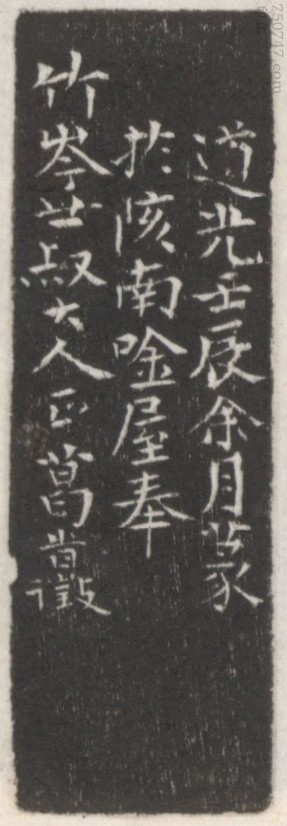 道光壬辰余月篆
於陔南唫屋奉
竹岑世叔大人正葛旹徵
750747.com